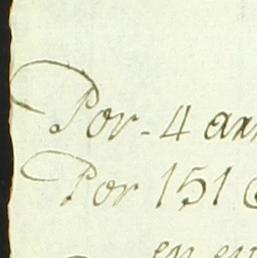 Por - 4 
Por 151
en